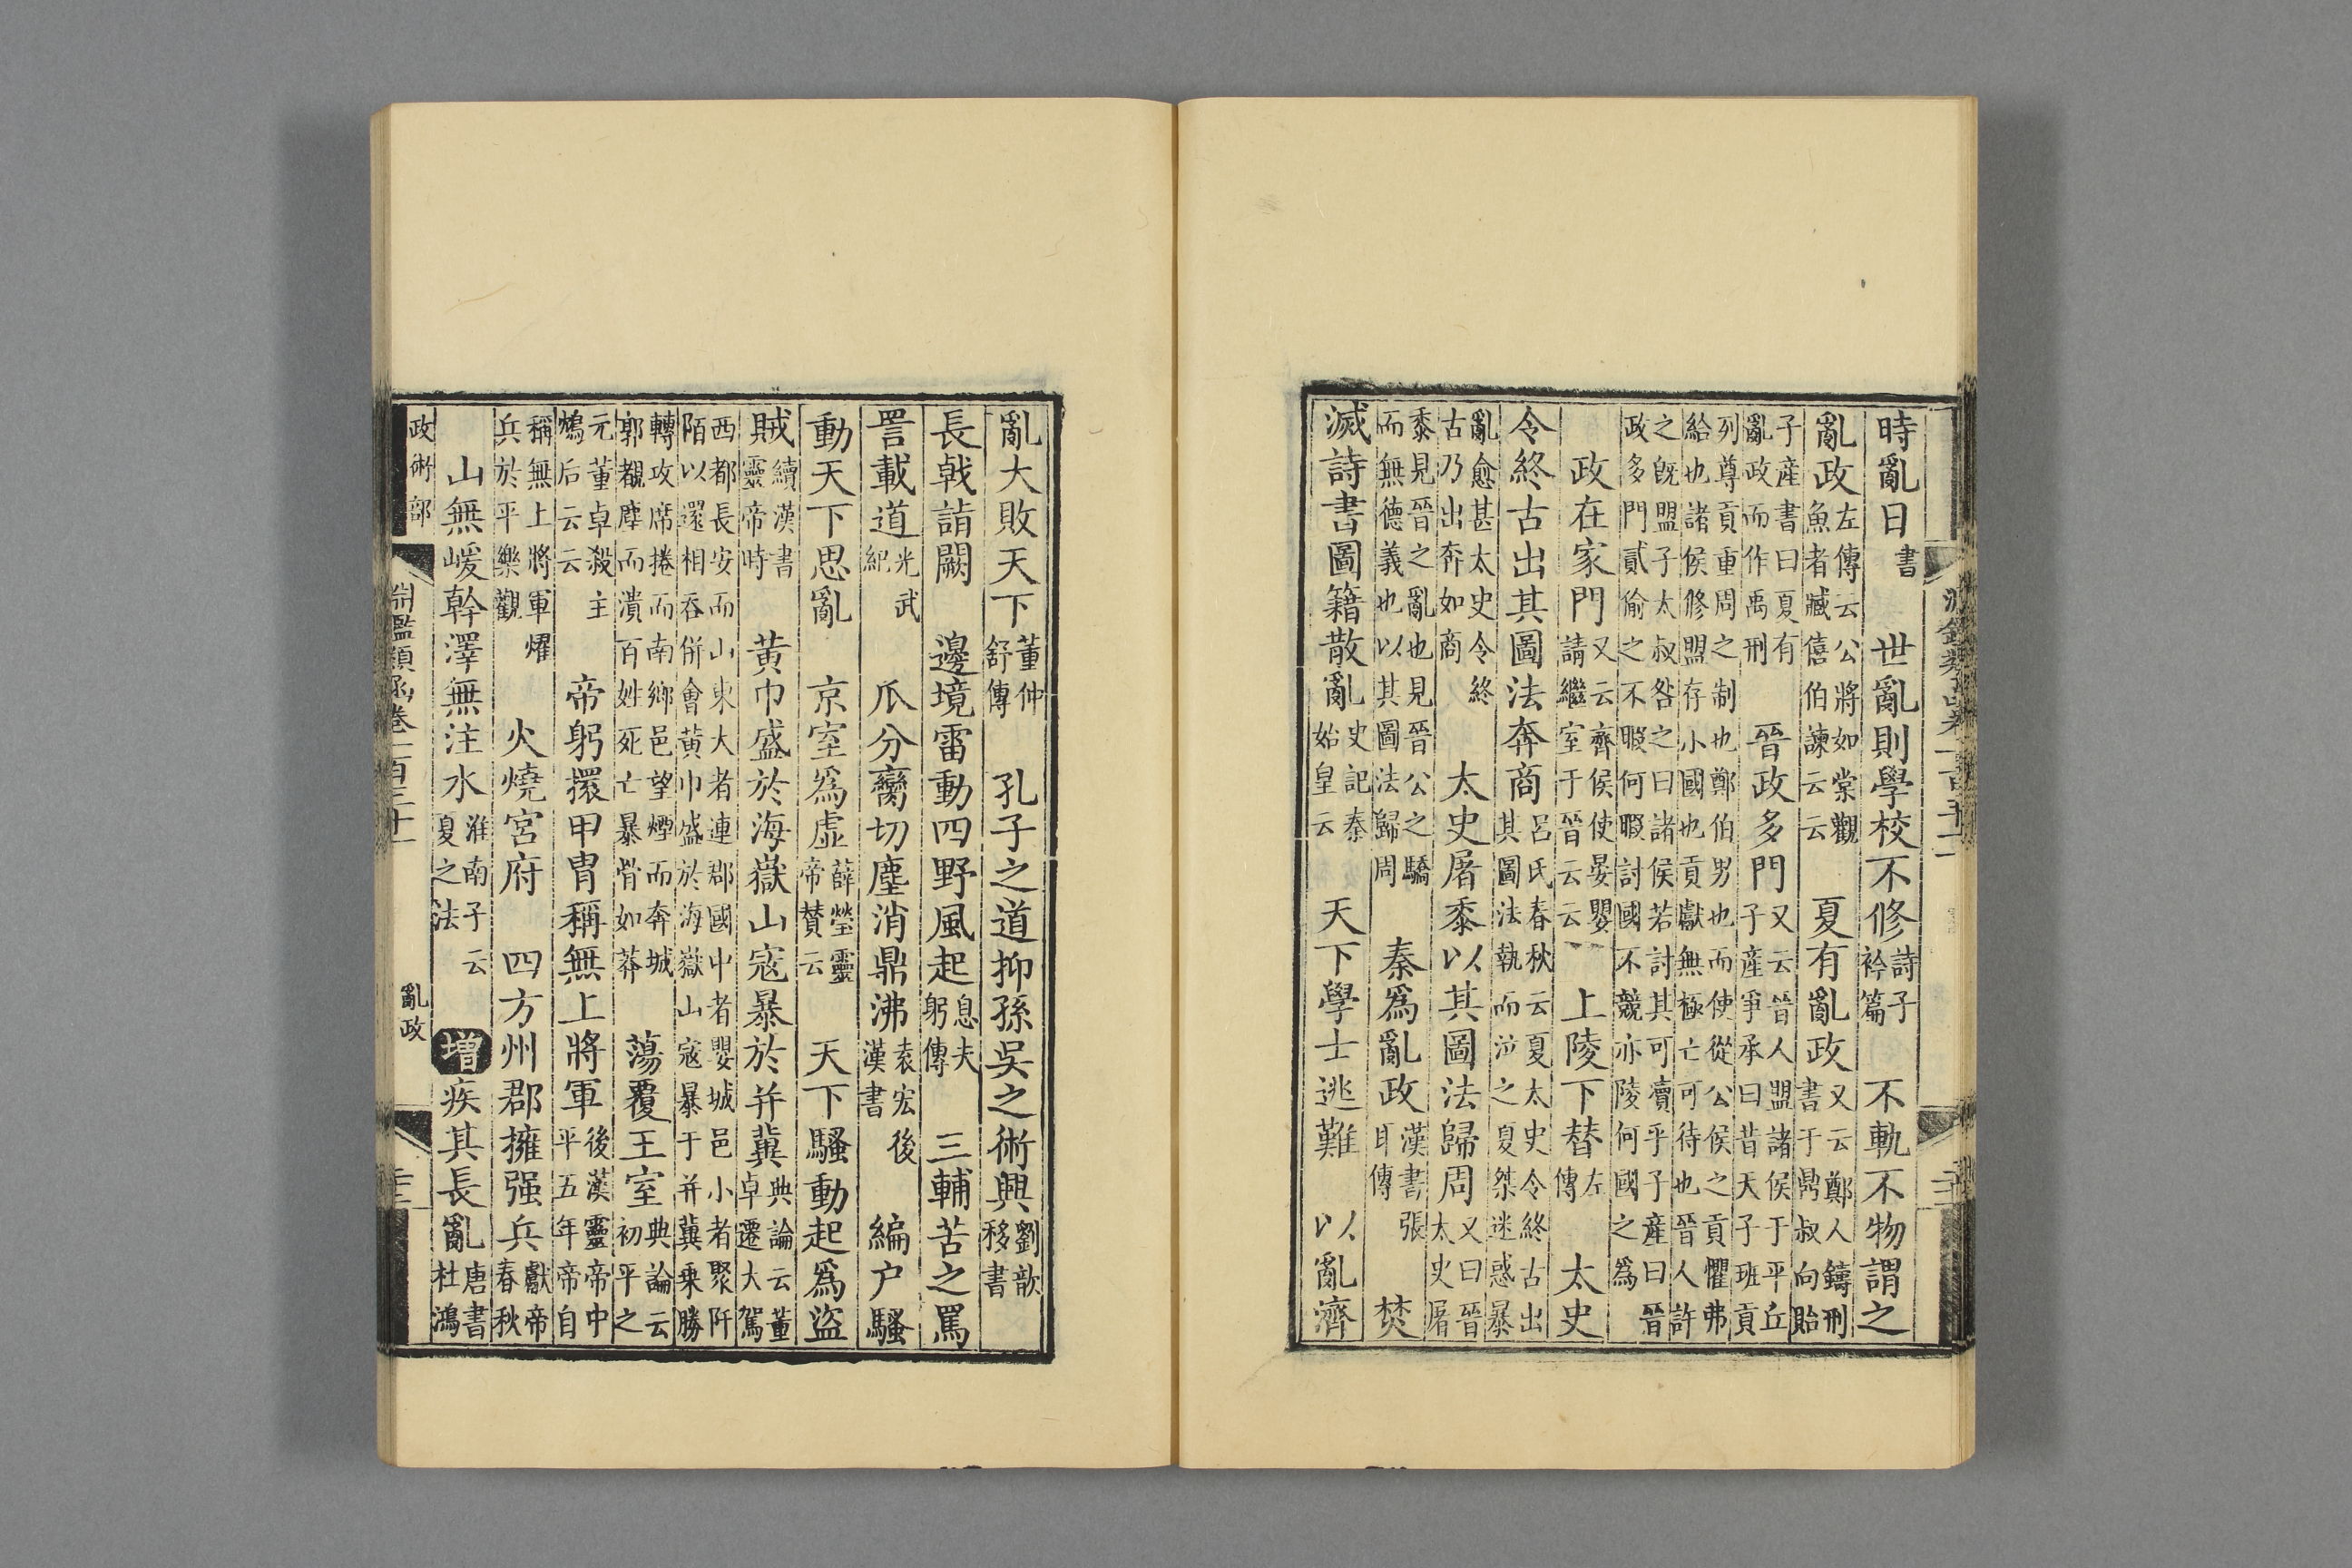 時亂日書　世亂則學校不修詩子衿篇　不軌不物謂之
亂政左傳云公將如棠觀魚者臧僖伯諫云云　夏有亂政又云鄭人鑄刑書于鼎叔向貽
子產書曰夏有亂政而作禹刑　晉政多門又云晉人盟諸侯于平丘子產爭承曰昔天子班貢
列尊貢重周之制也鄭伯男也而使從公侯之貢懼弗給也諸侯修盟存小國也貢獻無極亡可待也晉人許
之旣盟子太叔咎之曰諸侯若討其可瀆乎子產曰晉政多門貳偷之不暇何暇討國不競亦陵何國之爲
政在家門又云齊侯使晏嬰請繼室于晉云云　上陵下替左傳　太史
令終古出其圖法奔商呂氏春秋云夏太史令終古出其圖法執而泣之夏桀迷惑暴
亂愈甚太史令終古乃出奔如商　太史屠黍以其圖法歸周又曰晉太史屠
黍見晉之亂也見晉公之驕而無德義也以其圖法歸周　秦爲亂政漢書張耳傳　焚
滅詩書圖籍散亂史記秦始皇云　天下學士逃難　以亂濟
亂大敗天下董仲舒傳　孔子之道抑孫吳之術興劉歆移書
長戟詣闕　邊境雷動四野風起息夫躬傳　三輔苦之罵
詈載道光武紀　瓜分臠切塵消鼎沸袁宏後漢書　編户騷
動天下思亂　京室爲虛薛瑩靈帝贊云　天下騷動起爲盜
賊續漢書靈帝時　黃巾盛於海嶽山寇暴於并冀典論云董卓遷大駕
西都長安而山東大者連郡國中者嬰城邑小者聚阡陌以還相吞併會黃巾盛於海嶽山寇暴于并冀乗勝
轉攻席捲而南鄉邑望煙而奔城郭覩塵而潰百姓死亡暴骨如莽　蕩覆王室典論云初平之
元董卓殺主鴆后云云　帝躬擐甲冑稱無上將軍後漢靈帝中平五年帝自
稱無上將軍燿兵於平樂觀　火燒宮府　四方州郡擁强兵獻帝春秋
山無峻幹澤無注水淮南子云夏之法　增疾其長亂唐書杜鴻
政術部　淵鑑類函卷一百三十一　亂政